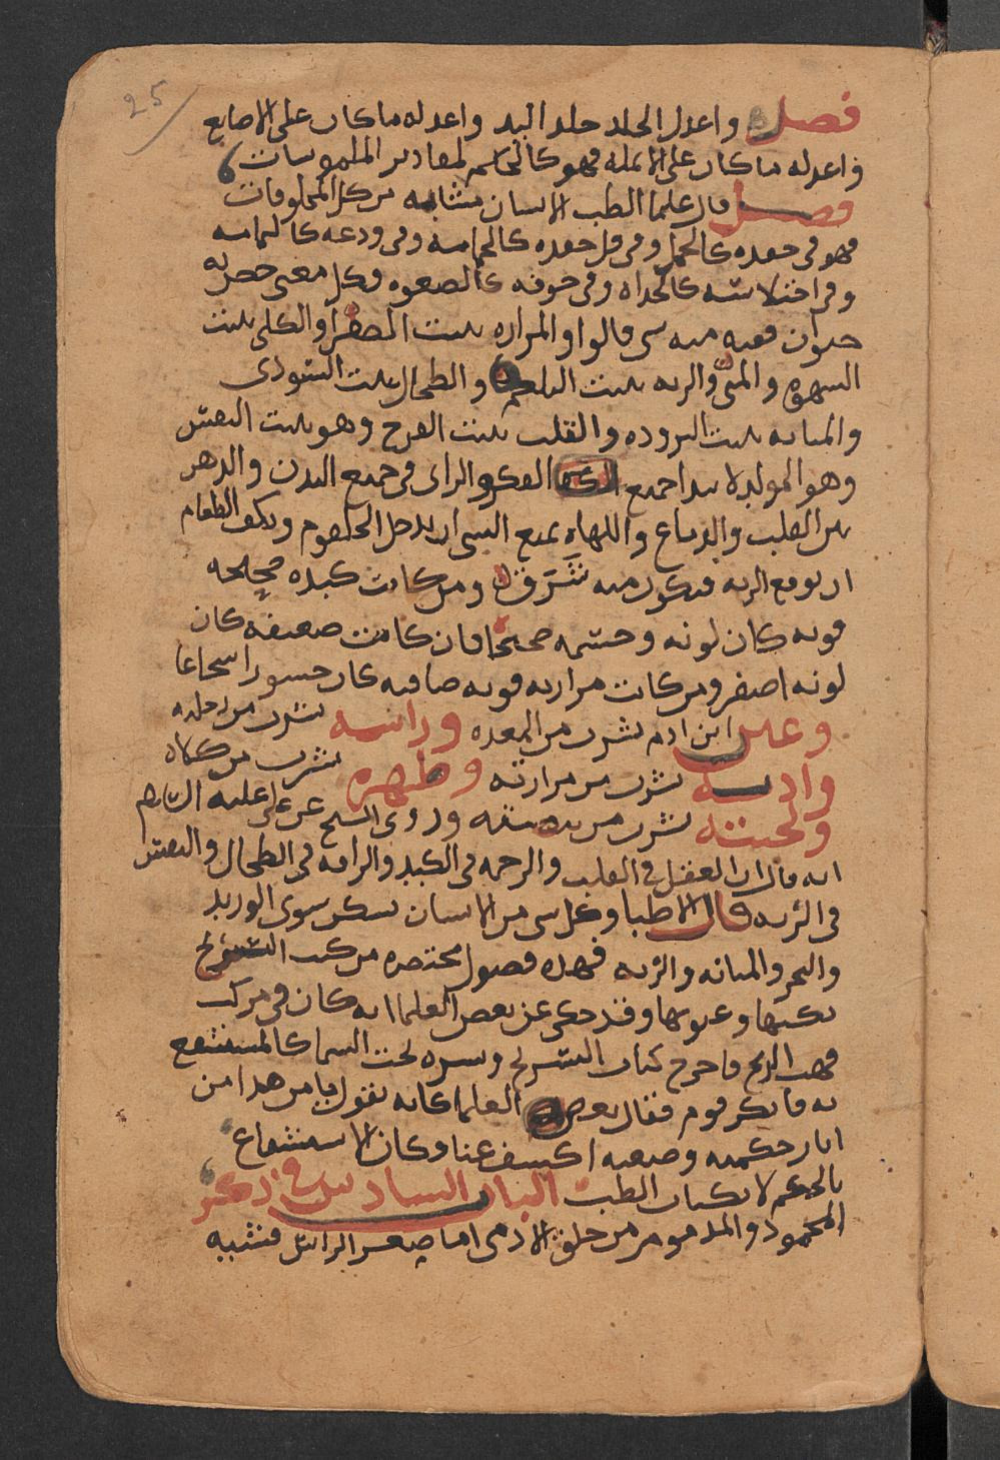 25
فصل واعدل الجلد جلد اليد واعدله ما كان على الاصابع
واعدله ما كان على الانمله فهو كالحاكم لمقادير الملموسات
فصل قال علما الطب الانسان مشابه من كل المخلوقات
فهو في حقده كالجمل وفي قل حقده كالحمامة وفي
وفي اختلاسه كالحداه وفي خوفه كالصعوه وكل معنى حص به
حيوان ففيه منه شي قالوا والمراره بيت الصفرا والكلى بيت
الشهوه والمنى والريه بيت البلغم والطحال بيت السودى
والمثانه بيت البروده والقلب بيت الفرح وهو بيت النفس
وهو المولد لا بدا جميع الفكر والراى في جميع البدن والدهر
بين القلب والدماغ واللهاه تمنع الشي ان يدخل الحلقوم وتكف الطعام
ان يقع الريه فيكون منه شرق ومن كانت كبده صحيحه
قويه كان لونه وجسمه صحيحا فان كانت ضعيفه كان
لونه اصفر ومن كانت مرارته قويه صافيه كان جسورا شجاعا
وعين ابن ادم تشرب من المعده وراسه تشرب من
واذنه تشرب من مرارته وظهره تشرب من كلاه
ولحيته تشرب من بيضته وروى عن على عليه السلم
انه قال ان العقل في القلب والرحمه في الكبد والرافه في الطحال والنفس
في الريه قال الاطبا وكل شي من الانسان يسكن سوى الوريد
والمثانه والريه فهذه فصول مختصره من كتب التشريح
نكتبها وعيونها وقد حكى عن بعض العلما انه كان في مركب
فهب الريح فاخرج كتاب التشريح ونشره تحت السما كالمستشفع
به فانكر قوم فقال بعض العلما كانه يقول يا من هذا من
اثار حكمته وصنعه اكشف عنا وكان الاستشفاع
بالحكم لا بكتاب الطب الباب السادس في ذكر
المحمود والمذموم من خلق الادمي اما صغر الراس فتشبه